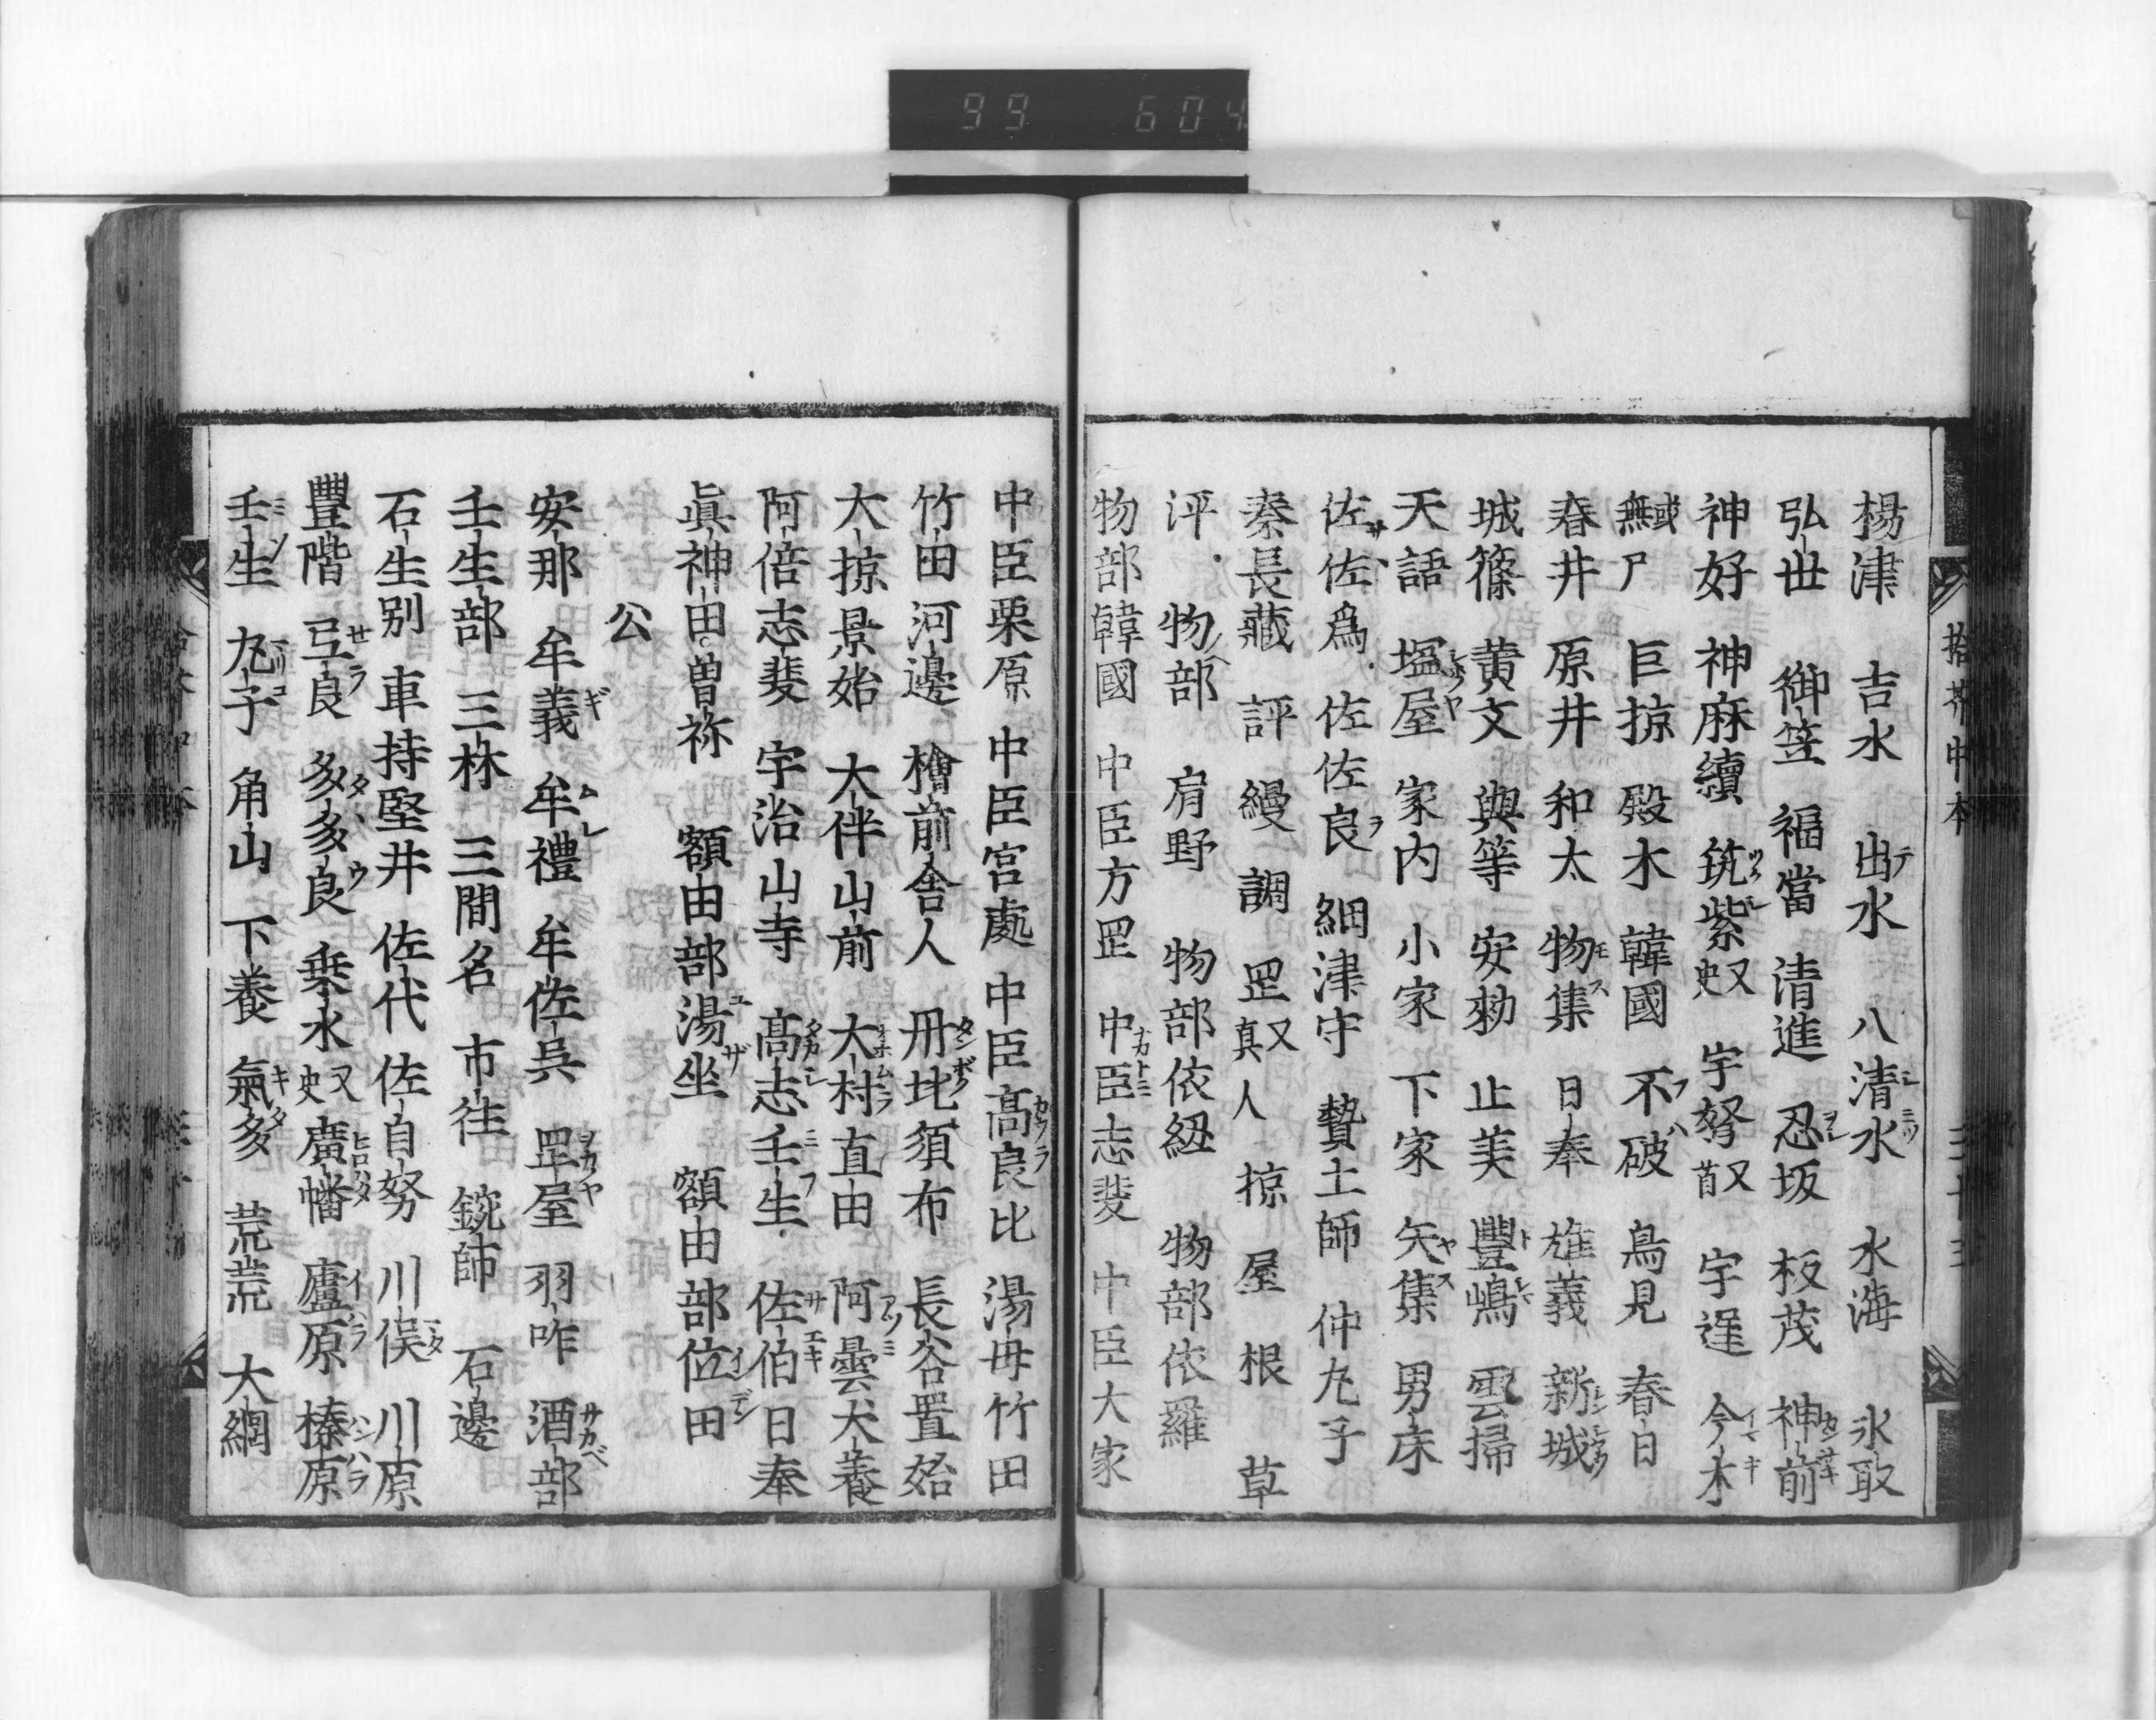 99 604
拾芥中本
楊津 吉水 出水 八清水 水海 氷取
弘世 御笠 福當 清進 忍坂 板茂 神前
神好 神麻續 筑紫又史 宇努又首 宇逞 今木
尸 巨掠 殿木 韓國 不破 鳥見 春日
春井 原井 和太 物集 日奉 雄義 新城
城篠 黄文 與等 安勅 止美 豐嶋 雲掃
天語 塩屋 家内 小家 下家 矢集 男床
佐佐爲 佐佐良 細津守 贄土師 仲丸子
秦長藏 評 縵 調 罡又真人 掠 屋 根 草
泙 物部 肩野 物部依紐 物部依羅
物部韓國 中臣方罡 中臣志斐 中臣大家
中臣栗原 中臣宮處 中臣髙良比 湯毋竹田
竹田河邊 檜前舎人 丹比須布 長谷置始
大掠景始 大伴山前 大村直由 阿曇犬養
阿倍志斐 宇治山寺 髙志壬生 佐伯日奉
眞神田曽祢 額由部湯坐 額由部位田
公
安那 牟義 牟禮 牟佐呉 罡屋 羽咋 酒部
壬生部 三林 三間名 市往 鋺師 石邊
石生别 車持堅井 佐代 佐自努 川俣 川原
豐階 弖良 多多良 乗水又史 廣幡 廬原 榛原
壬生 丸子 角山 下養 氣多 荒荒 大網